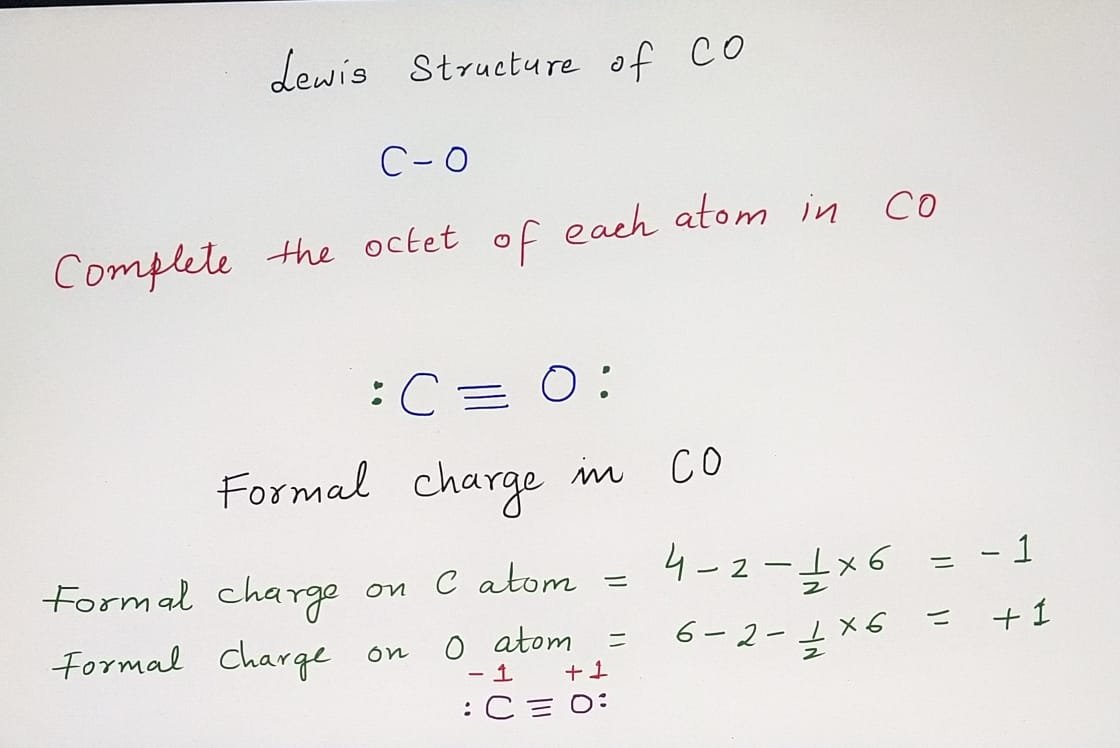 Lewis Structure of CO
C-O
Complete the octet of each atom in CO
:C≡O:
Formal charge in CO
Formal charge on C atom = 4-2-1/2×6 = -1
Formal charge on O atom = 6-2-1/2×6 = +1
-1 +1
:C≡O: